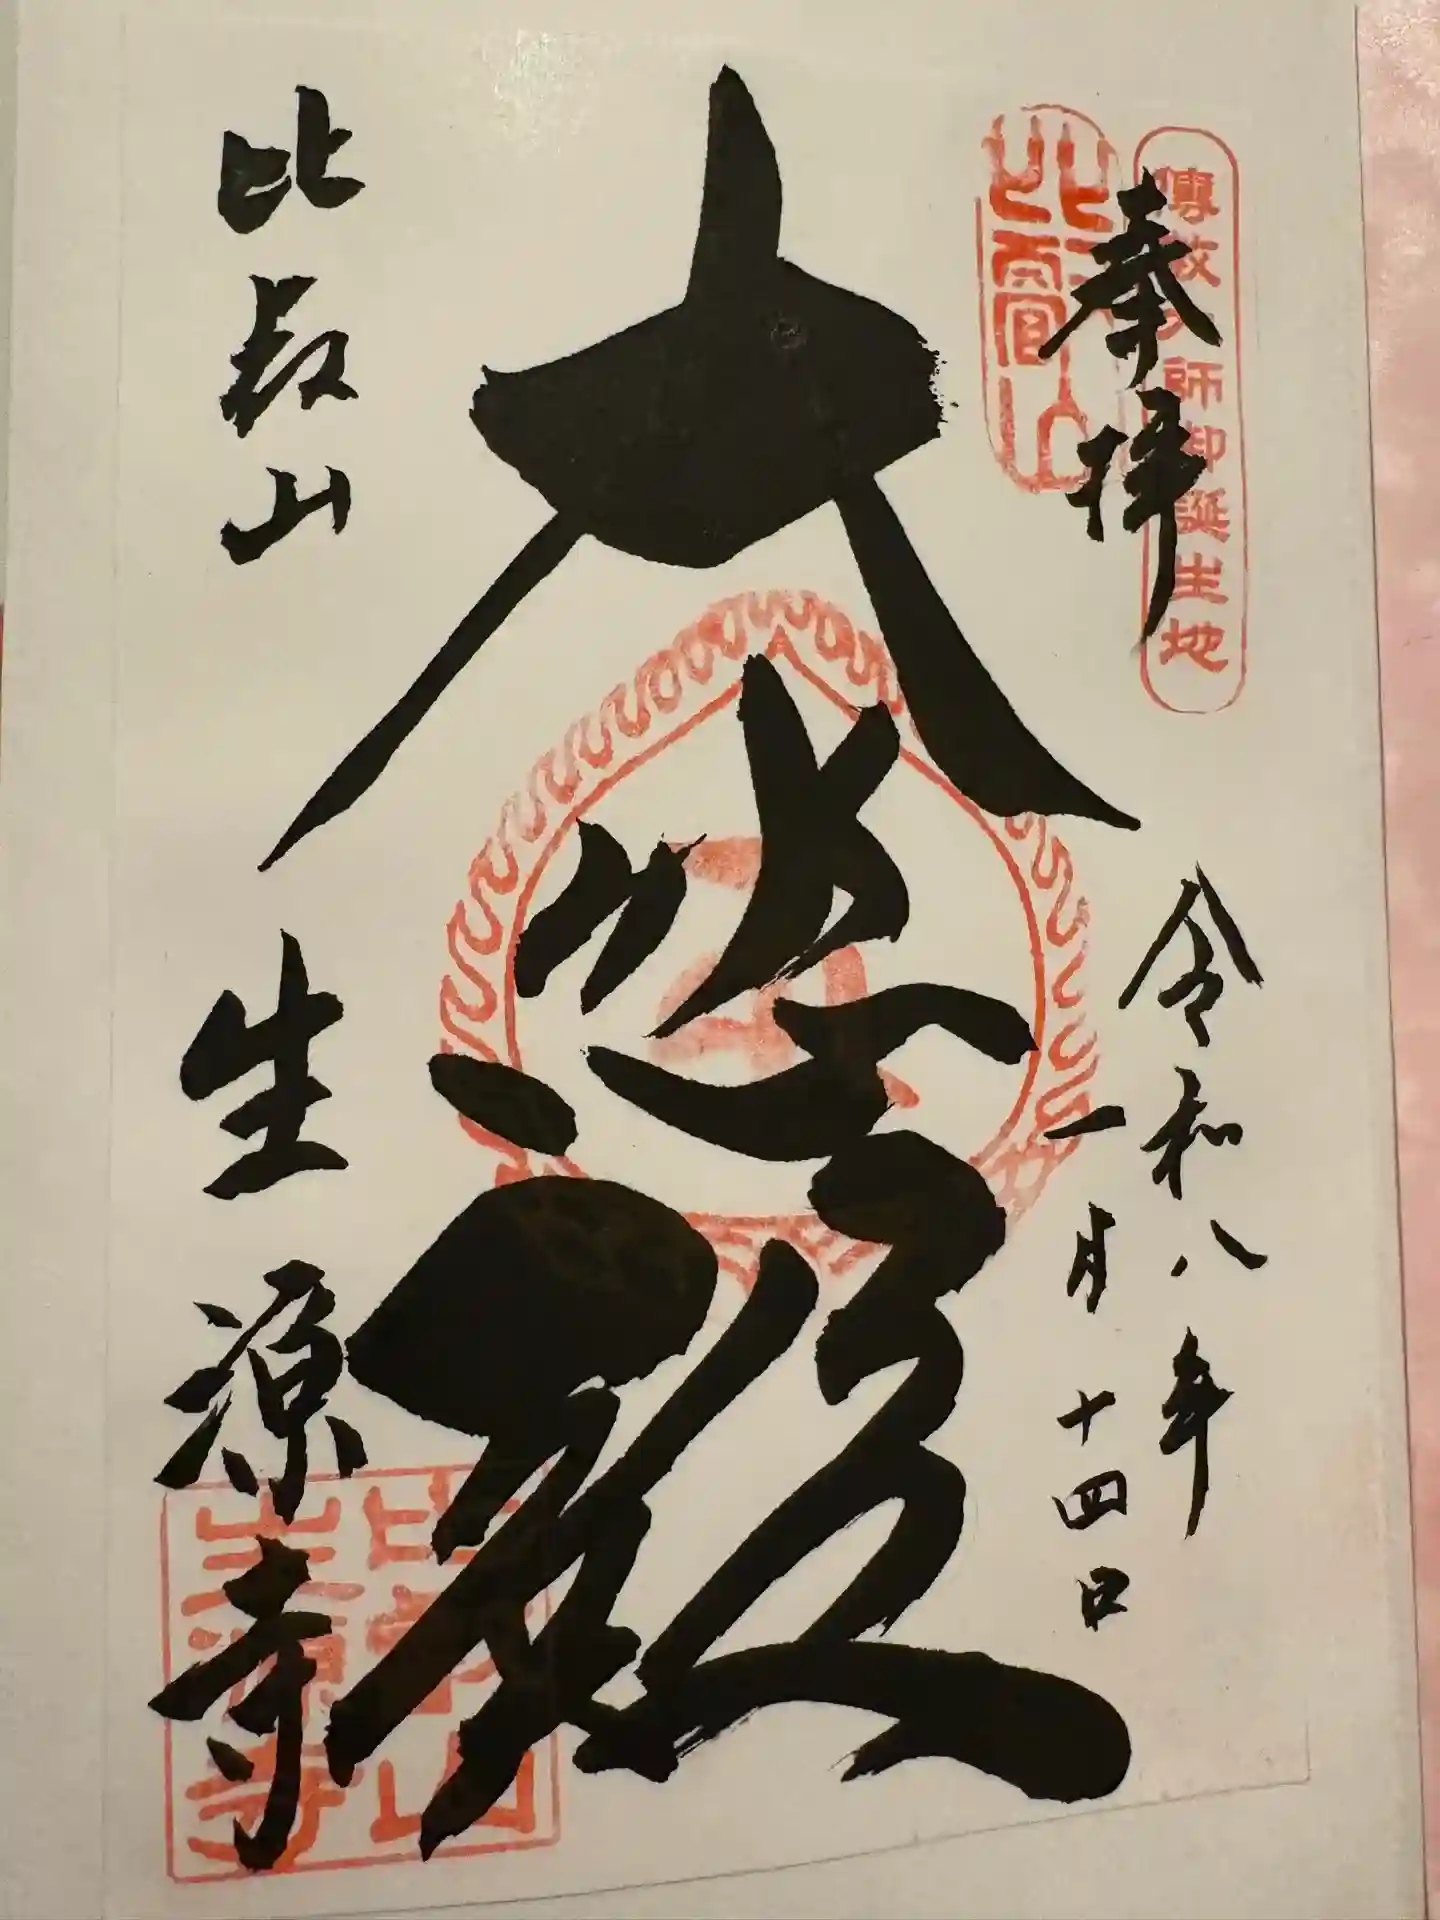 傳教大師御誕生地
奉拝
比叡山
令和八年
一月十四日
大悲殿
比叡山
生源寺
比叡山
生源寺